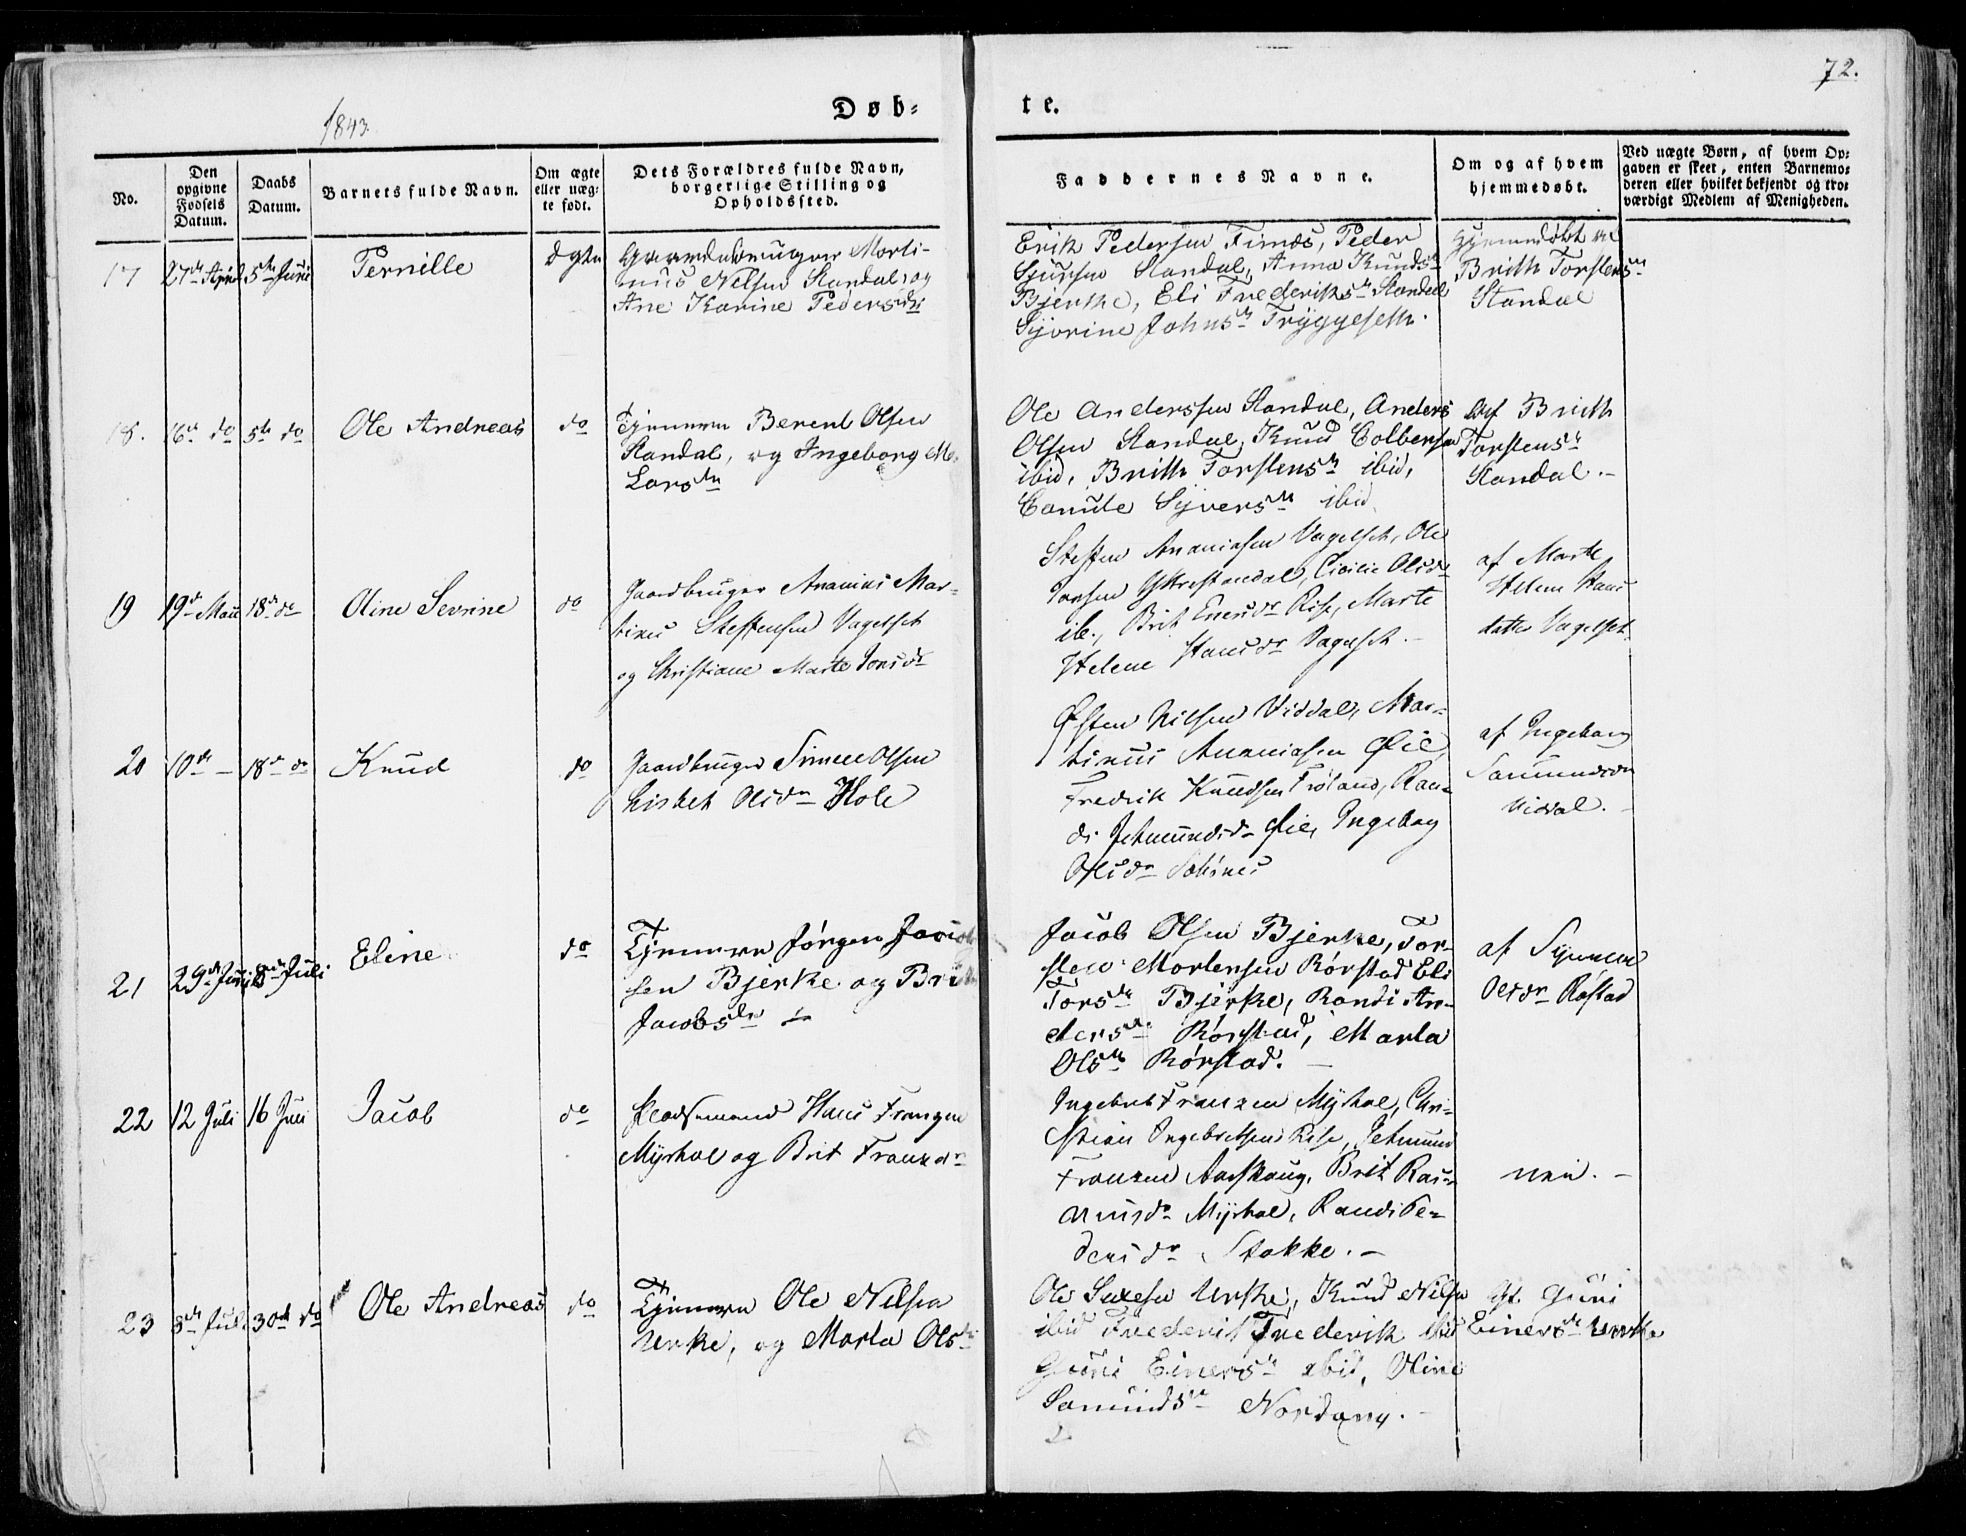 72.
1843.
Døb= te.
No.
Den opgivne Fødsels Datum.
Daabs Datum.
Barnets fulde Navn.
Om ægte eller uæg= te født.
Dets Forældres fulde Navn, borgerlige Stilling og Opholdssted.
Faddernes Navne.
Om og af hvem hjemmedøbt.
Ved uægte Børn, af hvem Op= gaven er skeet, enten Barnemo= deren eller hvilket bekjendt og tro= værdigt Medlem af Menigheden.
17 27de April 5te Juni Pernille ægte
Gaardebruger Morti-
nus Nelsen Standal, og
Ane Karine Pedersdr
Erik Pedersen Finnes, Peder
Sjursen Standal, Anna Knudsdr
Bjerke, Eli Frederiksdr Standal
Syvrine Johnsdr Tryggeseth.
Hjemmedøbt af
Brith Torstensdr
Standal
18. 16de do 5te do Ole Andreas do
Tjenere Berent Olsen
Standal, og Ingeborg M.
Larsdtr
Ole Anderssen Standal, Anders
Olsen Standal, Knud Colbensen
ibid, Brith Torstensdr ibid,
Canute Syversdr ibid.
Af Brith
Torstensdr
Standal.-
19 19de Mai 18de do Oline Sevrine do
Gaardbruger Ananias Mar-
tinus Steffensen Vagelset
og Christiane Marte Jonsdr
Steffen Ananiasen Vagelset, Ole
Jonsen Yttrestandal, Cicilie Olsdr
ib., Brit Enersdr Rise, Marte
Helene Hansdr Vagelset.-
af Marte
Helene Hans
datter Vagelset.
20 10de - 18de do Knud do
Gaardbruger Simen Olsen
Lisbet Olsdr Hole
Østen Nilsen Viddal, Mar-
tinus Ananiasen Øie,
Fredrik Knudsen Frøland, Ran-
di Jetmundsdr Øie, Ingeborg
Olsdr Sæbønes
af Ingeborg
Samundsdr
Viddal.-
21 29de Juni 8de Juli Eline do
Tjenere Jørgen Jacob
sen Bjerke og Brith
Jacobsdr
Jacob Olsen Bjerke, Tor-
sten Mortensen Rørstad Eli
Torsdr Bjerke, Randi An-
dersdr Rørstad, Marta
Olsdr Rørstad.-
af Synneve
Olsdr Røstad
22 12 Juli 16 Juli Jacob do
Pladsmand Hans Franzen
Myrhol og Brit Franzdr
Ingebret Franzen Myhol, Chri-
stian Ingebretsen Rise, Jetmund
Franzen Aarskaug, Brit Ras-
musdr Myrhol, Randi Pe-
dersdr Stokke.-
nei.-
23 8de Juli 30de do Ole Andreas do
Tjenere Ole Nelsen
Urke, og Marta Olsdr
Ole Saxesen Urke, Knud Nilsen
ibid Frederik Frederik ibid
Guri Einersdr ibid, Oline
Samundsdr Nordang.-
Af Guri
Einersdr Urke